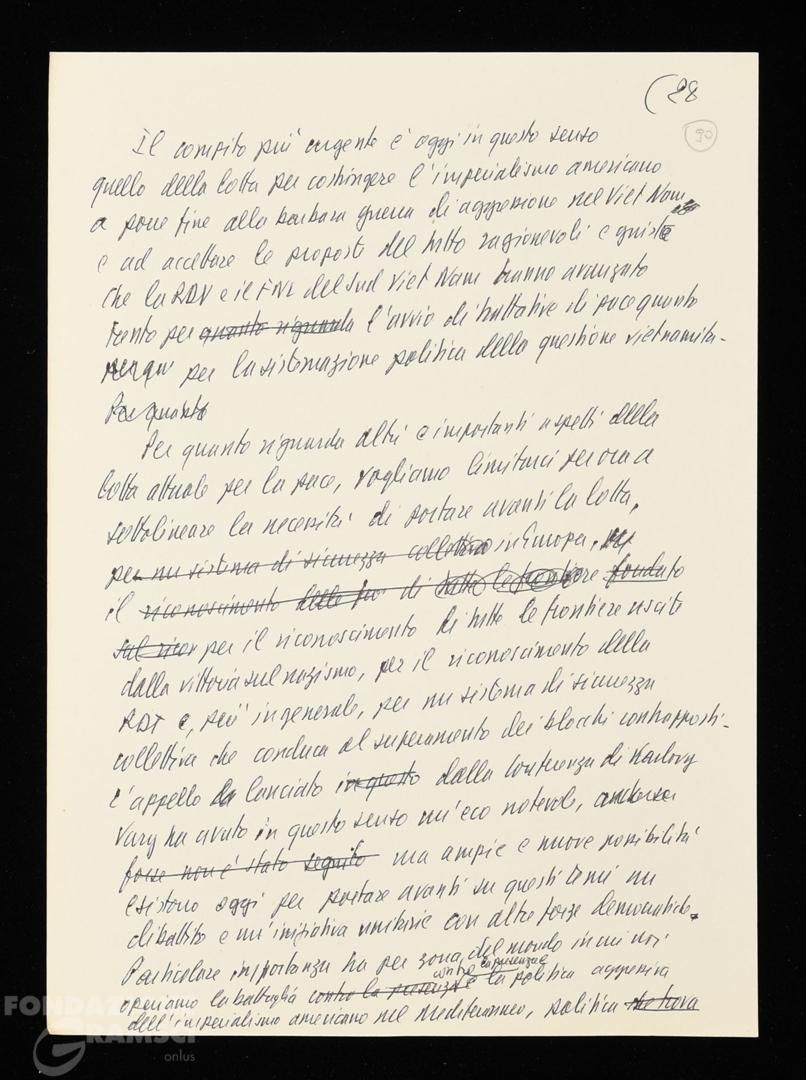 (28
90
Il compito più urgente è oggi in questo senso
quello della lotta per costringere l'imperialismo americano
a porre fine alla barbara guerra di aggressione nel Viet Nam
e ad accettare le proposte del tutto ragionevoli e giuste
che la RDV e il FNL del Sud Viet Nam hanno avanzato
tanto per quanto riguarda l'avvio di trattative di pace quanto
per la sistemazione politica della questione vietnamita.
Per quanto
Per quanto riguarda altri e importanti aspetti della
lotta attuale per la pace, vogliamo limitarci per ora a
sottolineare la necessità di portare avanti la lotta,
per un sistema di sicurezza collettiva in Europa,
il riconoscimento delle di tutte le frontiere fondato
sul ricon per il riconoscimento di tutte le frontiere uscite
dalla vittoria sul nazismo, per il riconoscimento della
RDT e, più in generale, per un sistema di sicurezza
collettiva che conduca al superamento dei blocchi contrapposti.
L'appello lanciato in questo dalla Conferenza di Karlovy
Vary ha avuto in questo senso un'eco notevole, anche se
forse non è stato seguito ma ampie e nuove possibilità
esistono oggi per portare avanti su questi temi un
dibattito e un'iniziativa unitarie con altre forze democratiche.
Particolare importanza ha per zona del mondo in cui noi
contro la presenza e
operiamo la battaglia contro la presenza e la politica aggressiva
dell'imperialismo americano nel Mediterraneo, politica che trova
FONDAZI
GRAMSCI
onlus